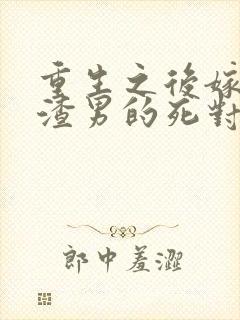 重生之後嫁
渣男的死對
郎中羞澀